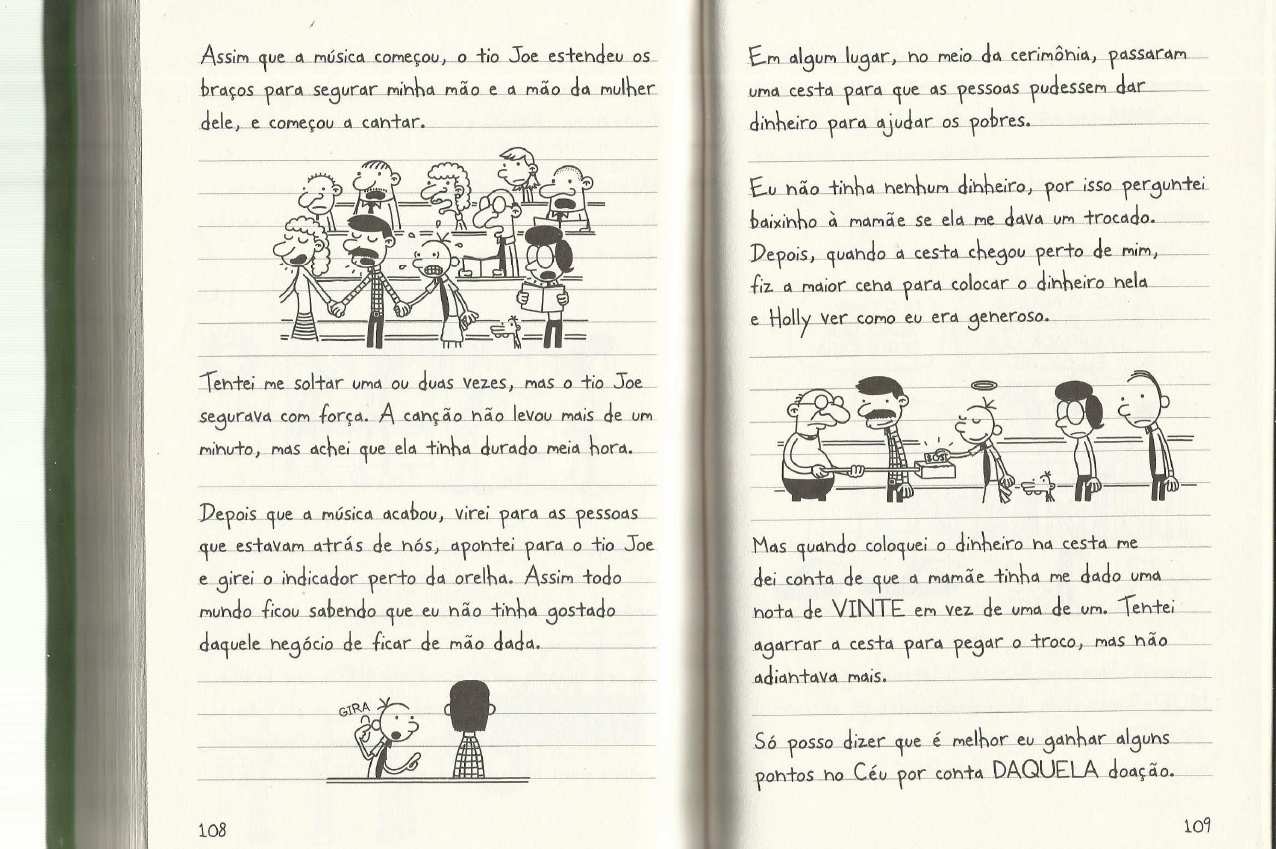 Assim que a música começou, o tio Joe estendeu os
braços para segurar minha mão e a mão da mulher
dele, e começou a cantar.
Tentei me soltar uma ou duas vezes, mas o tio Joe
segurava com força. A canção não levou mais de um
minuto, mas achei que ela tinha durado meia hora.
Depois que a música acabou, virei para as pessoas
que estavam atrás de nós, apontei para o tio Joe
e girei o indicador perto da orelha. Assim todo
mundo ficou sabendo que eu não tinha gostado
daquele negócio de ficar de mão dada.
GIRA
108
Em algum lugar, no meio da cerimônia, passaram
uma cesta para que as pessoas pudessem dar
dinheiro para ajudar os pobres.
Eu não tinha nenhum dinheiro, por isso perguntei
baixinho à mamãe se ela me dava um trocado.
Depois, quando a cesta chegou perto de mim,
fiz a maior cena para colocar o dinheiro nela
e Holly ver como eu era generoso.
Mas quando coloquei o dinheiro na cesta me
dei conta de que a mamãe tinha me dado uma
nota de VINTE em vez de uma de um. Tentei
agarrar a cesta para pegar o troco, mas não
adiantava mais.
Só posso dizer que é melhor eu ganhar alguns
pontos no Céu por conta DAQUELA doação.
109